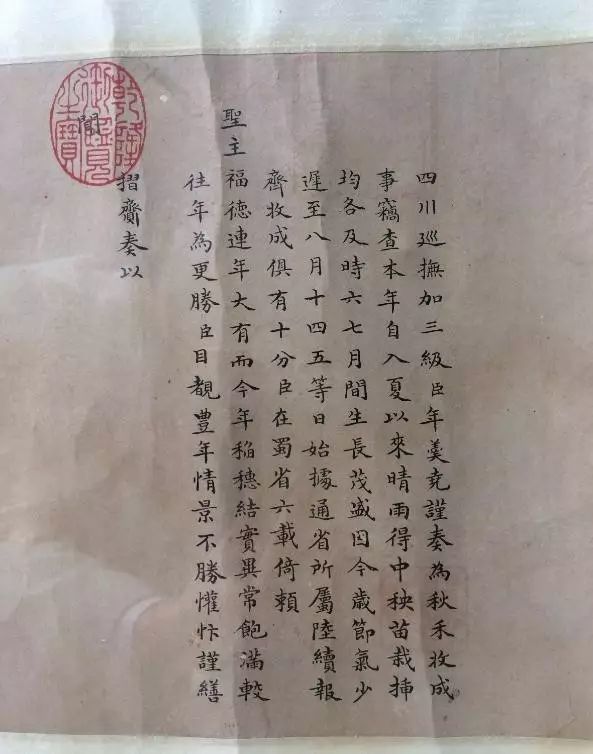 四川巡撫加三級臣年羹堯謹奏為秋禾收成
事竊查本年自入夏以來晴雨得中秧苗栽插
均各及時六七月間生長茂盛因今歲節氣少
遲至八月十四五等日始據通省所屬陸續報
齊收成俱有十分臣在蜀省六載倚賴
聖主福德連年大有而今年稻穗結實異常飽滿較
往年為更勝臣目覩豊年情景不勝懽忭謹繕
摺齎奏以
聞
乾隆御覽之寶